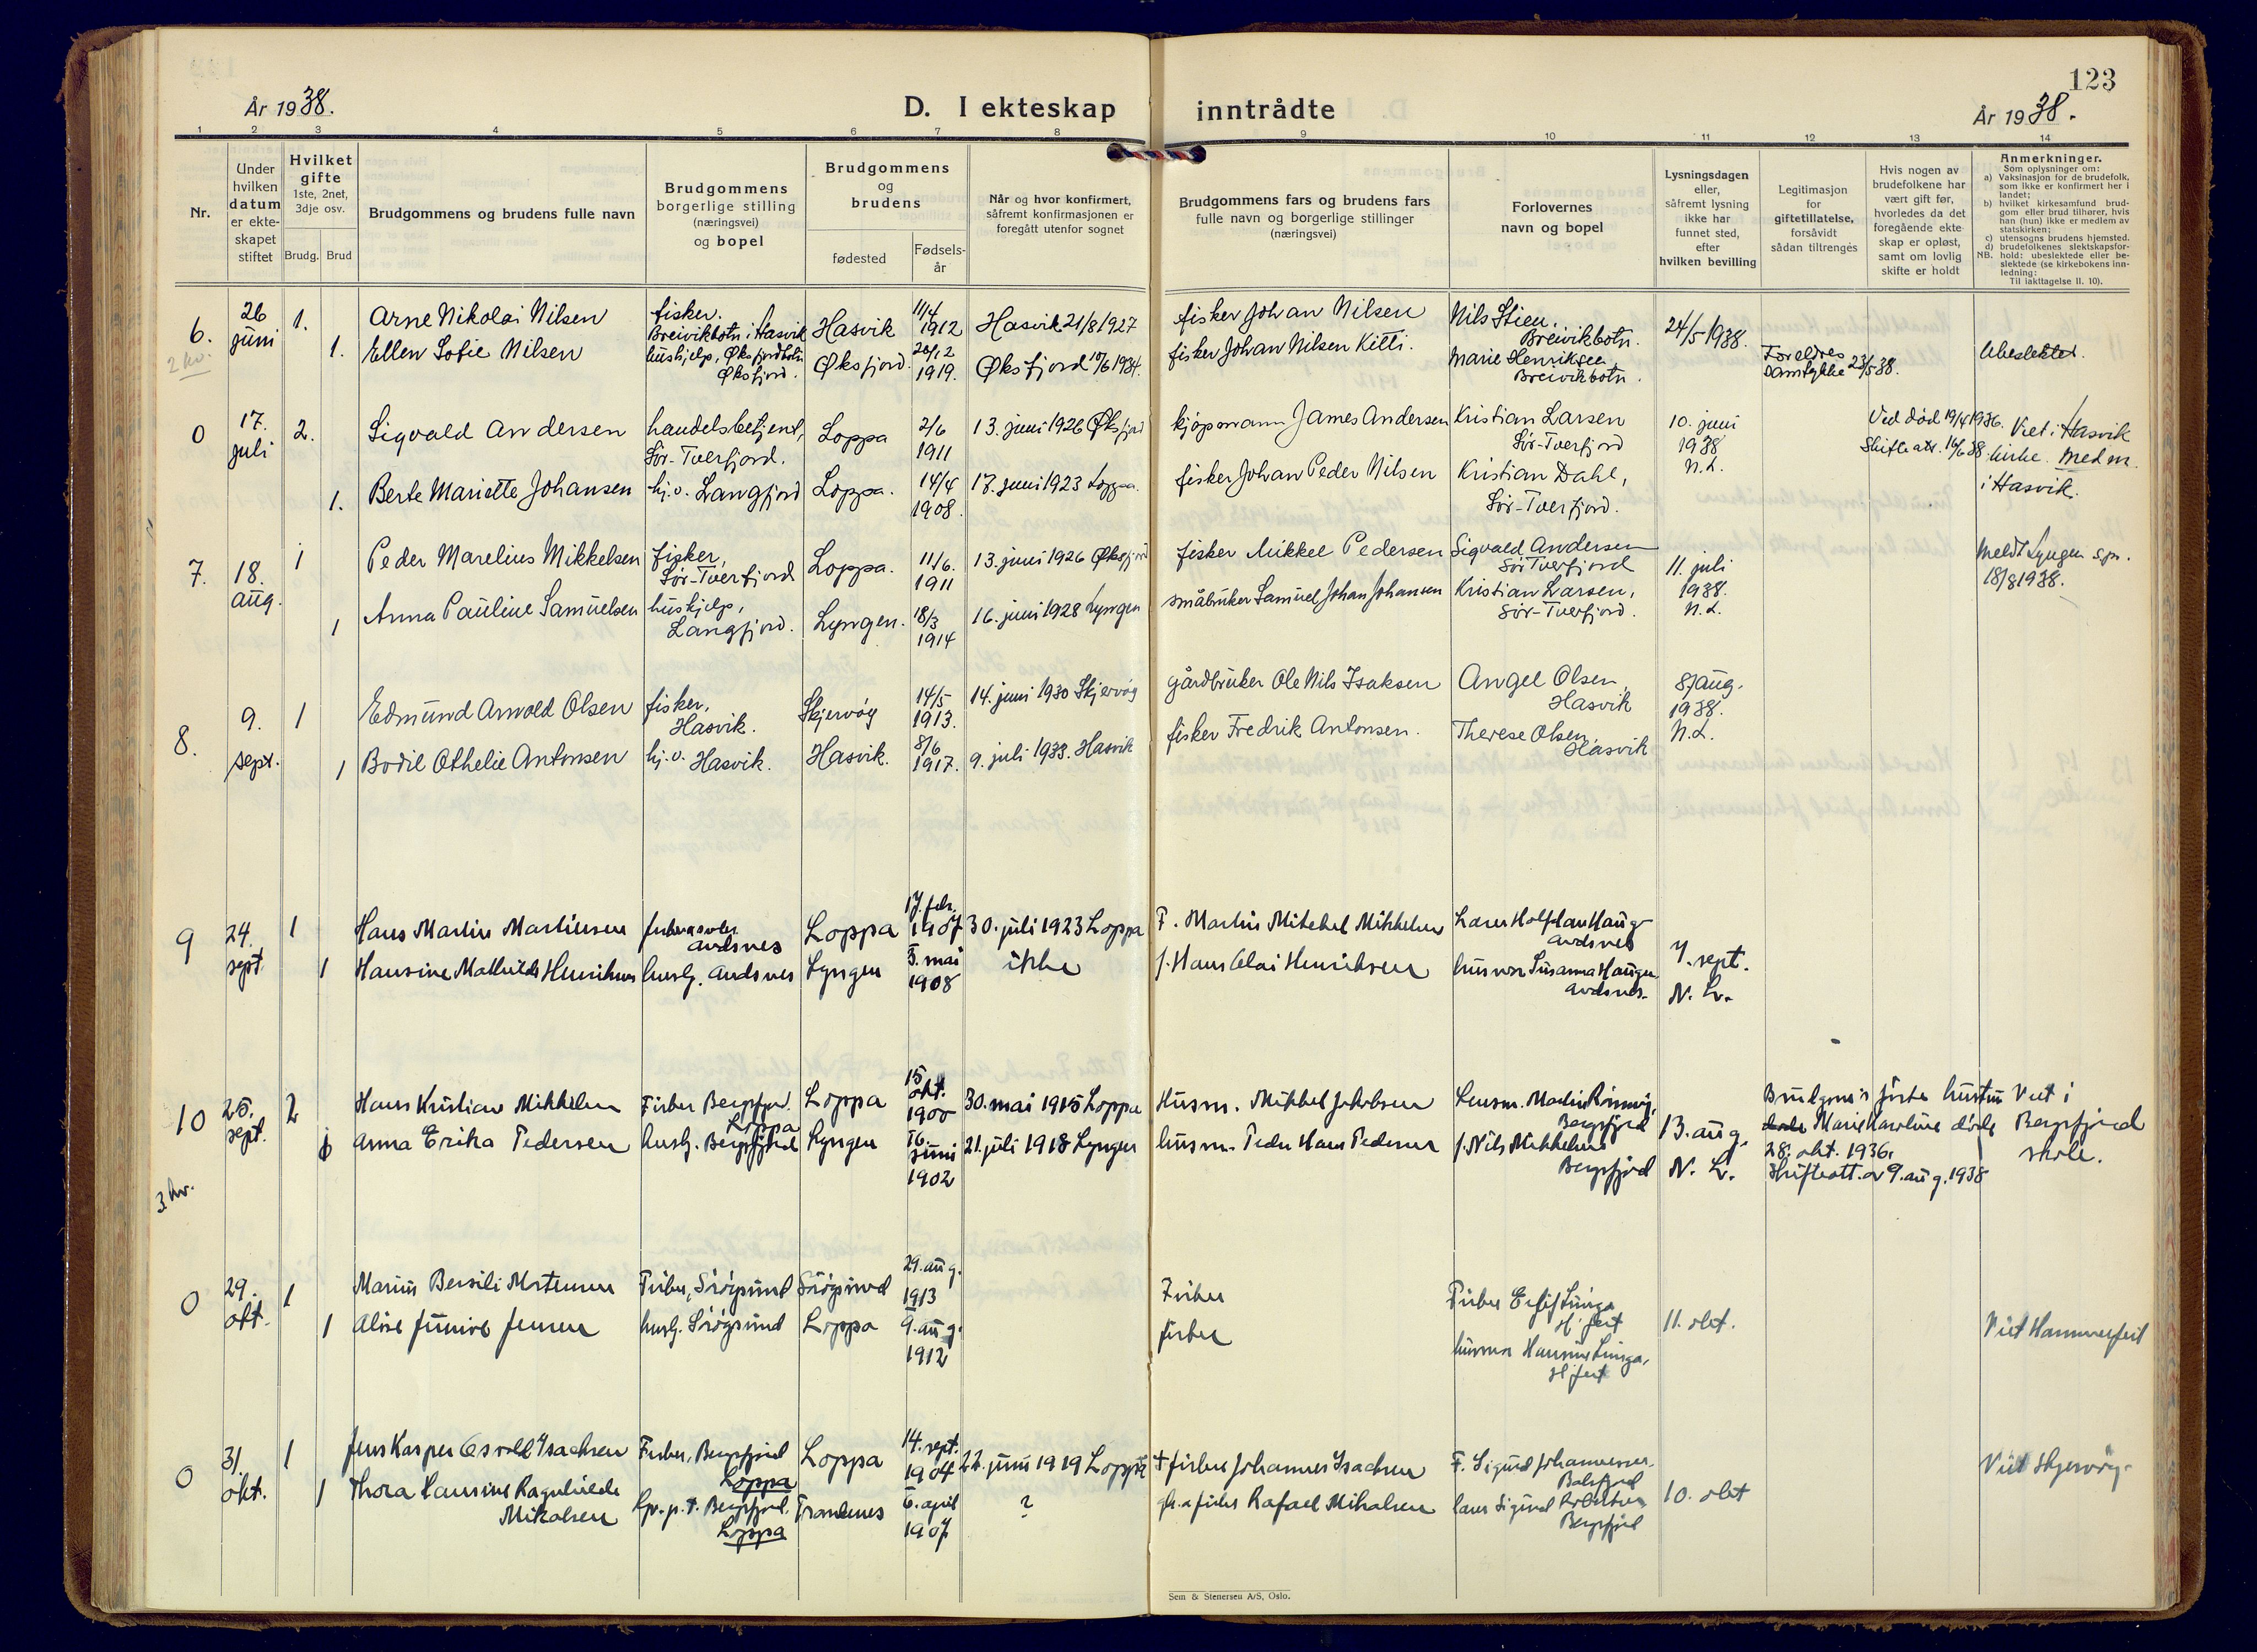 123
År 1938.
D. I ekteskap inntrådte
År 1938.
1 2 3 4 5 6 7 8 9 10 11 12 13 14
Nr.
Under
hvilken
datum
er ekte-
skapet
stiftet
Hvilket
gifte
1ste, 2net,
3dje osv.
Brudg. Brud
Brudgommens og brudens fulle navn
Brudgommens
borgerlige stilling
(næringsvei)
og bopel
Brudgommens
og
brudens
fødested
Fødsels-
år
Når og hvor konfirmert,
såfremt konfirmasjonen er
foregått utenfor sognet
Brudgommens fars og brudens fars
fulle navn og borgerlige stillinger
(næringsvei)
Forlovernes
navn og bopel
Lysningsdagen
eller,
såfremt lysning
ikke har
funnet sted,
efter
hvilken bevilling
Legitimasjon
for
giftetillatelse,
forsåvidt
sådan tiltrenges
Hvis nogen av
brudefolkene har
vært gift før,
hvorledes da det
foregående ekte-
skap er opløst,
samt om lovlig
skifte er holdt
Anmerkninger.
Som oplysninger om:
a) Vaksinasjon for de brudefolk,
som ikke er konfirmert her i
landet;
b) hvilket kirkesamfund brud-
gom eller brud tilhører, hvis
han (hun) ikke er medlem av
statskirken;
c) utensogns brudens hjemsted.
d) brudefolkenes slektskapsfor-
hold: ubeslektede eller be-
slektede (se kirkebokens inn-
ledning:
NB.
Til iakttagelse II. 10).
6.
2 kv.
26
juni
1.
1.
Arne Nikolai Nilsen
Ellen Sofie Nilsen
fisker.
Breivikbotn i Hasvik
hushjelp, Øksfjordbotn
Øksfjord.
Hasvik
Øksfjord.
11/4
1912
20/12
1919.
Hasvik 21/8 1927
Øksfjord 17/6 1934.
fisker Johan Nilsen
fisker Johan Nilsen Kitti.
Nils Stien,
Breivikbotn.
Marie Henriksen,
Breivikbotn.
24/5 1938.
Foreldres
samtykke 23/5 38.
Ubeslektet.
0
17.
juli
2.
1.
Sigvald Andersen
Berte Mariette Johansen
handelsbetjent,
Sør-Tverfjord.
hj.v. Langfjord
Loppa
Loppa.
2/6
1911
14/4
1908.
13. juni 1926 Øksfjord
17. juni 1923 Loppa.
kjøpmann James Andersen
fisker Johan Peder Nilsen
Kristian Larsen
Sør-Tverfjord
Kristian Dahl,
Sør-Tverfjord.
10. juni
1938
N.L.
Ved død 19/4 1936.
Skifte att. 16/6 38.
Viet i Hasvik
kirke. Med m.
i Hasvik.
7.
18.
aug.
1
1
Peder Marelius Mikkelsen
Anna Pauline Samuelsen
fisker,
Sør-Tverfjord
hushjelp,
Langfjord.
Loppa.
Lyngen.
11/6.
1911
18/3
1914
13. juni 1926 Øksfjord
16. juni 1928 Lyngen
fisker Mikkel Pedersen
småbruker Samuel Johan Johansen
Sigvald Andersen
Sør Tverfjord
Kristian Larsen,
Sør-Tverfjord.
11. juli
1938.
N.L.
Meldt Lyngen spr.
18/8 1938.
8.
9.
sept.
1
1
Edmund Arnold Olsen
Bodil Othelie Antonsen
fisker,
Hasvik.
hj.v. Hasvik.
Skjervøy
Hasvik.
14/5
1913.
8/6
1917.
14. juni 1930 Skjervøy
9. juli 1933. Hasvik
gårdbruker Ole Nils Isaksen
fisker Fredrik Antonsen.
Angel Olsen,
Hasvik
Therese Olsen,
Hasvik
8/aug.
1938.
N.L.
9
24.
sept.
1
1
Hans Martin Martinsen
Hansine Mathilde Henriksen
Andsnes
hushj. Andsnes
Loppa
Lyngen
17. febr.
1907
3. mai
1908
30. juli 1923 Loppa
ikke
F. Martin Mikkel Mikkelsen
f. Hans Olai Henriksen
Lars Halfdan Haug
Andsnes
Susanna Haugen
Andsnes.
7. sept.
N. L.
10
3 kv.
25.
sept.
2
1
Hans Kristian Mikkelsen
Anna Erika Pedersen
Fisker Bergsfjord.
Loppa
hushj. Bergsfjord
Loppa
Lyngen
15
okt.
1900
16.
juni
1902
30. mai 1915 Loppa
21. juli 1918 Lyngen
Husm. Mikkel Jakobsen
husm. Peder Hans Pedersen
Bergsfjord
f. Nils Mikkelsen
Bergsfjord
13. aug.
N. L.
Brudgom's første hustru
døde Marie Karoline døde
28. okt. 1936.
Skifteatt. av 9. aug. 1938
Viet i
Bergsfjord
skole.
0
29.
okt.
1
1
Marius Bersili Mortensen
Alise Junive Jensen
Fisker, Sørøysund
hushj. Sørøysund
Sørøysund
Loppa
29. aug.
1913
9. aug.
1912
Fisker
fisker
Fisker
H.fest
H.fest
11. okt.
Viet Hammerfest
0
31.
okt.
1
1
Jens Kasper Osvald Isachsen
Thora Hansine Ragnhilde
Mikalsen
Fisker, Bergsfjord
Loppa
p.t. Bergsfjord,
Loppa
Loppa
Trondenes
14. sept.
1904
6. april
1907
22. juni 1919 Loppa
?
+ fisker Johannes Isachsen
fisker Rafael Mikalsen
F. Sigurd Johannessen
Bergsfjord
10. okt
Viet Skjervøy.
Sem & Stenersen A/S, Oslo.